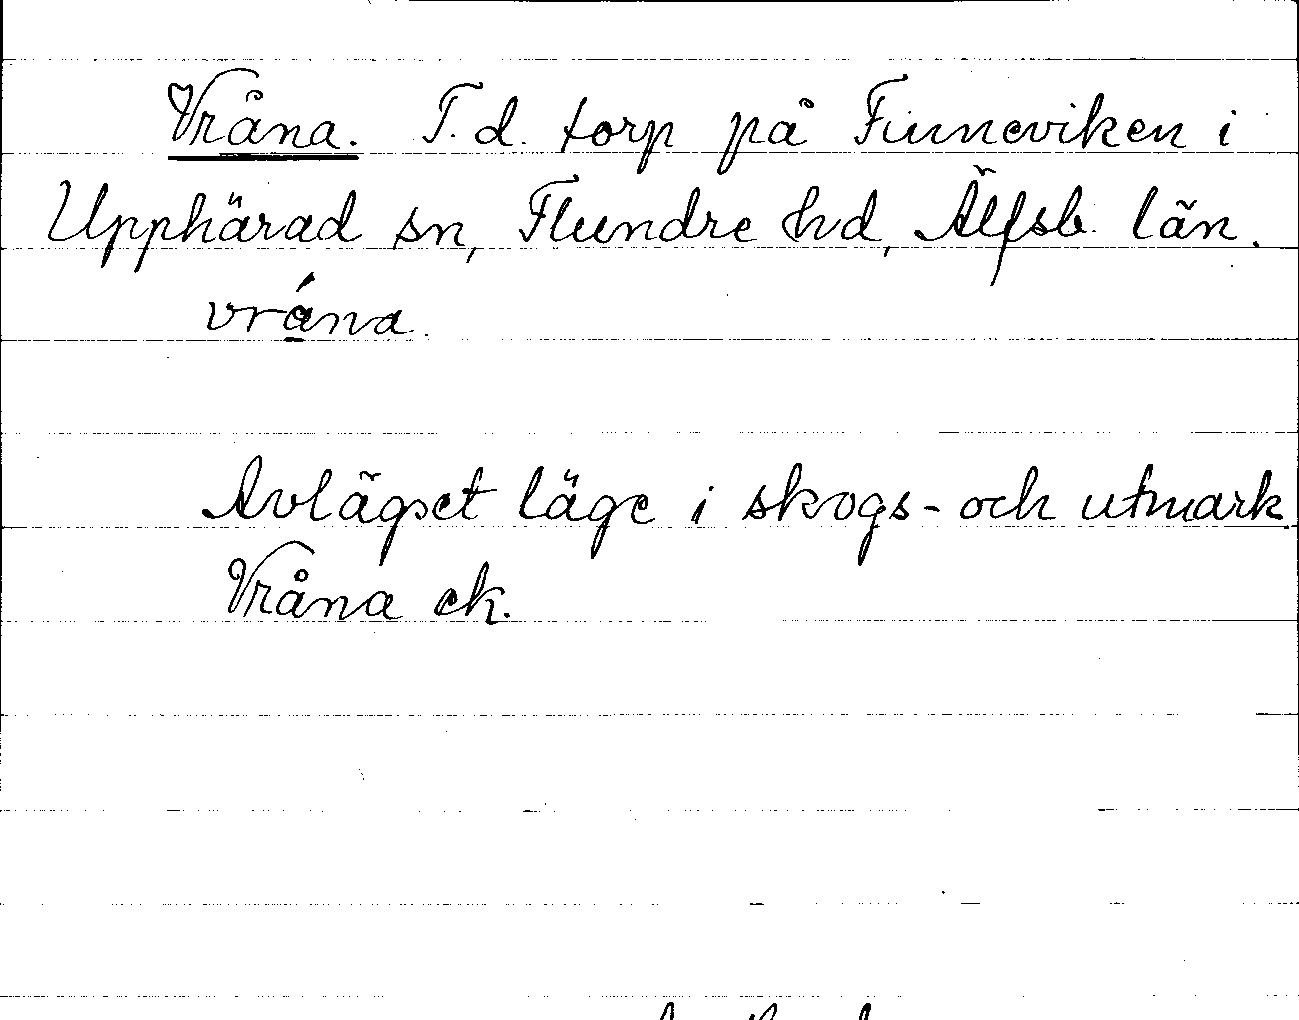 Vråna. T.d. torp på Finneviken i
Upphärad sn, Flundre hd, Älfsb. län.
vrá̱na.
Avlägset läge i skogs- och utmark.
Vråna ek.